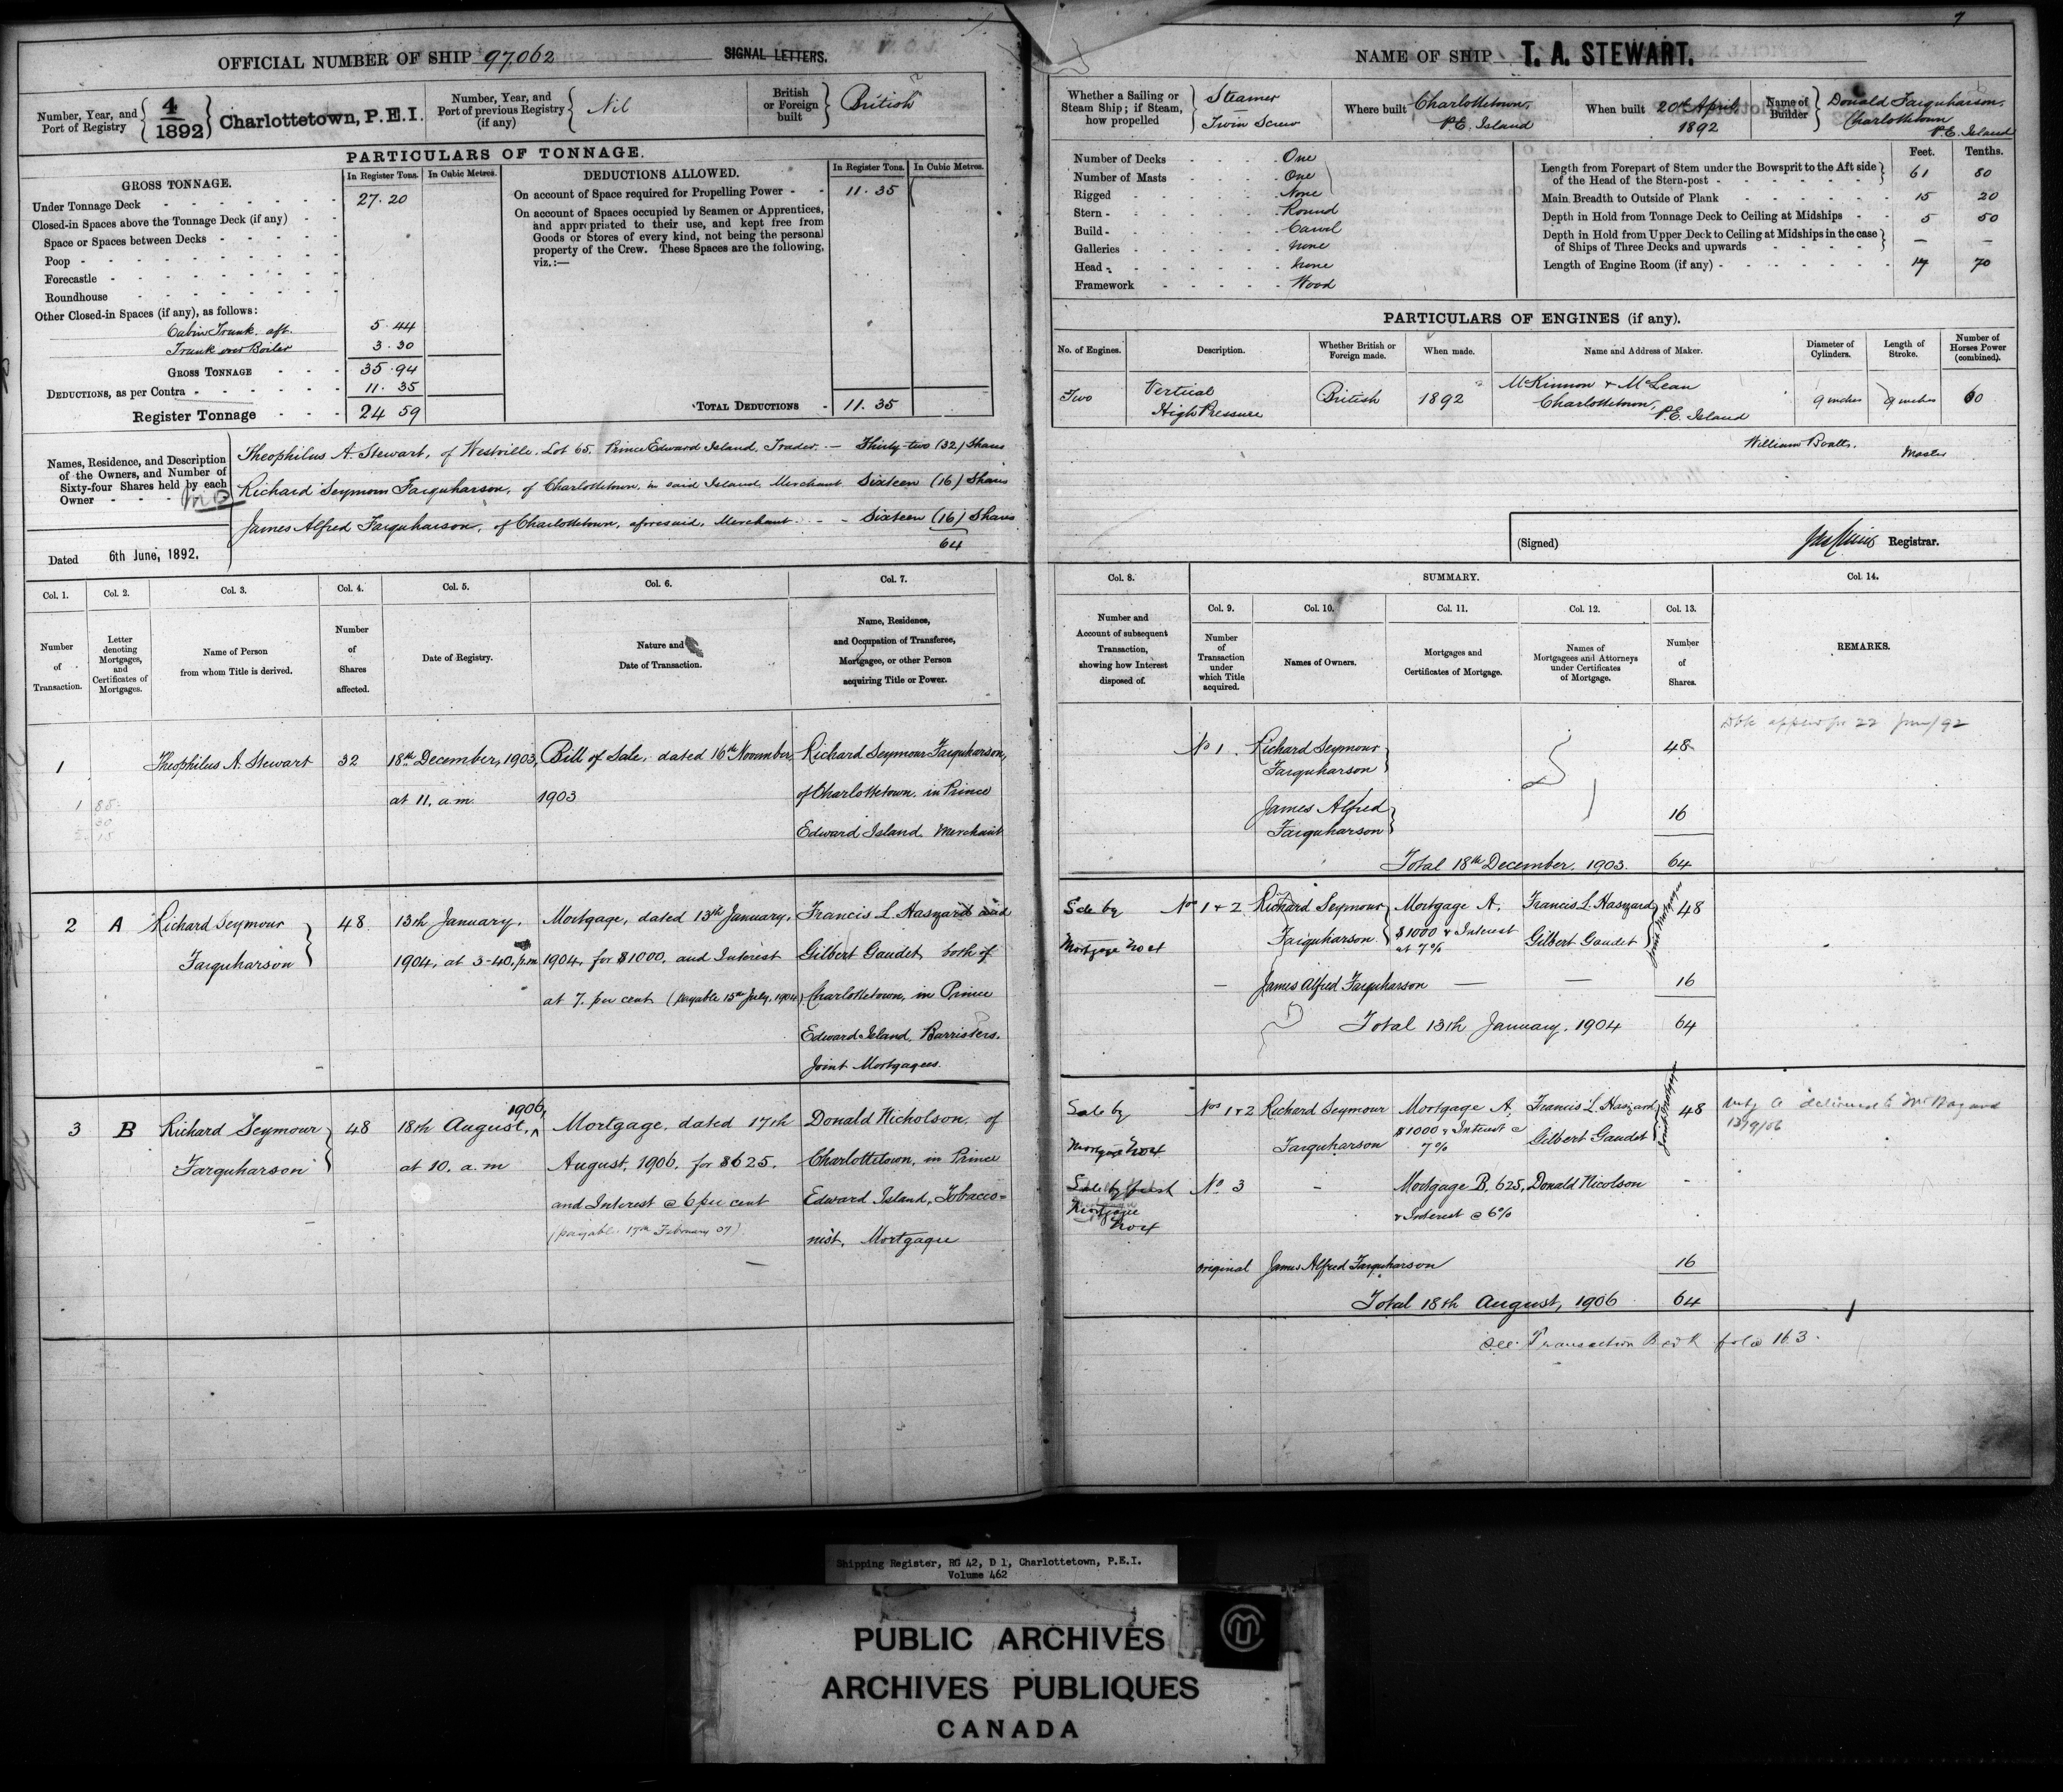 OFFICIAL NUMBER OF SHIP 97,062 SIGNAL LETTERS.
Number, Year, and Port of Registry 4/1892 Charlottetown, P.E.I.
Number, Year, and Port of previous Registry (if any) Nil
British or Foreign built British
PARTICULARS OF TONNAGE.
GROSS TONNAGE. In Register Tons. In Cubic Metres.
Under Tonnage Deck 27.20
Closed-in Spaces above the Tonnage Deck (if any)
Space or Spaces between Decks
Poop
Forecastle
Roundhouse
Other Closed-in Spaces (if any), as follows:
Cabin Trunk. aft. 5.44
Trunk over Boiler 3.30
GROSS TONNAGE 35.94
DEDUCTIONS, as per Contra 11.35
Register Tonnage 24 59
DEDUCTIONS ALLOWED. In Register Tons. In Cubic Metres.
On account of Space required for Propelling Power 11.35
On account of Spaces occupied by Seamen or Apprentices,
and appropriated to their use, and kept free from
Goods or Stores of every kind, not being the personal
property of the Crew. These Spaces are the following,
viz.:—
TOTAL DEDUCTIONS 11.35
Names, Residence, and Description
of the Owners, and Number of
Sixty-four Shares held by each
Owner
Theophilus A. Stewart, of Westville, Lot 65, Prince Edward Island, Trader. — Thirty-two (32) Shares
Richard Seymour Farquharson, of Charlottetown, in said Island, Merchant Sixteen (16) Shares
James Alfred Farquharson, of Charlottetown, aforesaid, Merchant. - - Sixteen (16) Shares
64
Dated 6th June, 1892.
Col. 1. Col. 2. Col. 3. Col. 4. Col. 5. Col. 6. Col. 7.
Number of Transaction.
Letter denoting Mortgages, and Certificates of Mortgages.
Name of Person from whom Title is derived.
Number of Shares affected.
Date of Registry.
Nature and Date of Transaction.
Name, Residence, and Occupation of Transferee, Mortgagee, or other Person acquiring Title or Power.
1 Theophilus A. Stewart 32 18th December, 1903, Bill of Sale, dated 16th November, Richard Seymour Farquharson,
at 11. a.m. 1903 of Charlottetown. in Prince
Edward Island Merchant
2 A Richard Seymour 48 13th January, Mortgage, dated 13th January, Francis L. Haszard and
Farquharson 1904, at 3-40. p.m 1904, for $1000. and Interest Gilbert Gaudet, both of
at 7. per cent (payable 15th July, 1904) Charlottetown, in Prince
Edward Island, Barristers.
Joint Mortgagees.
3 B Richard Seymour 48 18th August, 1906, Mortgage, dated 17th Donald Nicholson, of
Farquharson at 10. a.m August, 1906, for $625. Charlottetown, in Prince
and Interest @ 6 per cent Edward Island, Tobacco=
(payable 17th February 07) nist, Mortgagee
7
NAME OF SHIP T. A. STEWART.
Whether a Sailing or Steam Ship; if Steam, how propelled Steamer Twin Screw
Where built Charlottetown, P.E. Island
When built 20th April, 1892
Name of Builder Donald Farquharson, Charlottetown P.E. Island
Number of Decks One
Number of Masts One
Rigged None
Stern Round
Build Carvel
Galleries None
Head None
Framework Wood
Feet. Tenths.
Length from Forepart of Stem under the Bowsprit to the Aft side
of the Head of the Stern-post 61 80
Main Breadth to Outside of Plank 15 20
Depth in Hold from Tonnage Deck to Ceiling at Midships 5 50
Depth in Hold from Upper Deck to Ceiling at Midships in the case
of Ships of Three Decks and upwards — —
Length of Engine Room (if any) 17 70
PARTICULARS OF ENGINES (if any).
No. of Engines. Description. Whether British or Foreign made. When made. Name and Address of Maker. Diameter of Cylinders. Length of Stroke. Number of Horses Power (combined).
Two Vertical High Pressure British 1892 McKinnon & McLean Charlottetown, P.E. Island 9 inches 9 inches 60
William Boalts. Master
(Signed) Registrar.
Col. 8. SUMMARY. Col. 14.
Col. 9. Col. 10. Col. 11. Col. 12. Col. 13.
Number and Account of subsequent Transaction, showing how Interest disposed of.
Number of Transaction under which Title acquired.
Names of Owners.
Mortgages and Certificates of Mortgage.
Names of Mortgagees and Attorneys under Certificates of Mortgage.
Number of Shares.
REMARKS.
No 1. Richard Seymour Farquharson 48
James Alfred Farquharson 16
Total 18th December, 1903. 64
Sale by Nos 1 & 2 Richard Seymour Mortgage A, Francis L. Haszard 48
Mortgage No 4 Farquharson $1000 & Interest Gilbert Gaudet Joint Mortgagees
at 7%
— James Alfred Farquharson — — 16
Total 13th January, 1904 64
Sale by Nos 1 & 2 Richard Seymour Mortgage A, Francis L. Haszard 48
Mortgage No 4 Farquharson $1000 & Interest @ Gilbert Gaudet Joint Mortgagees
7%
Sale by first No 3 - Mortgage B. 625, Donald Nicolson -
Mortgagee No 4 & Interest @ 6%
original James Alfred Farquharson 16
Total 18th August, 1906 64
See Transaction Book folio 163.
Shipping Register, RG 42, D 1, Charlottetown, P.E.I.
Volume 462
PUBLIC ARCHIVES
ARCHIVES PUBLIQUES
CANADA